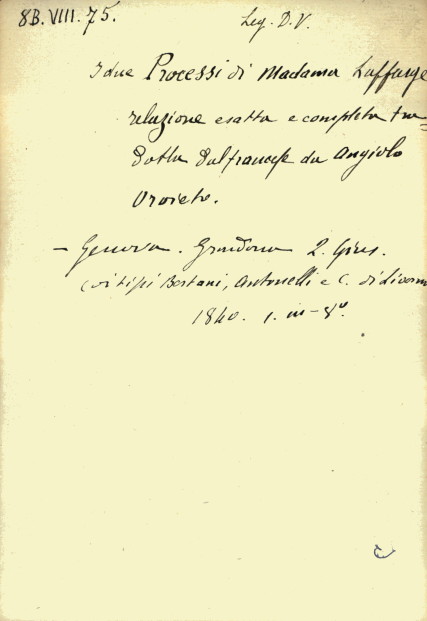 8B.VIII.75.
Leg. D.V.
I due Processi di Madama Laffarge
relazione esatta e completa tra=
dotta dal francese da Angiolo
Orvieto.
— Genova. Grondona q. Gius.
(coi tipi Bertani, Antonelli e C. di Livorn
1840. 1. in-8º.